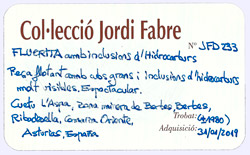 Col·lecció Jordi Fabre
Nº JFD233
FLUORITA amb inclusions d'Hidrocarburs
Peça flotant amb cubs grans i inclusions d'hidrocarburs
molt visibles. Espectacular.
Cueto L'Aspa, zona minera de Berbes, Berbes,
Ribadesella, Comarca Oriente,
Trobat: (±1980)
Asturias, España
Adquisició: 31/01/2019